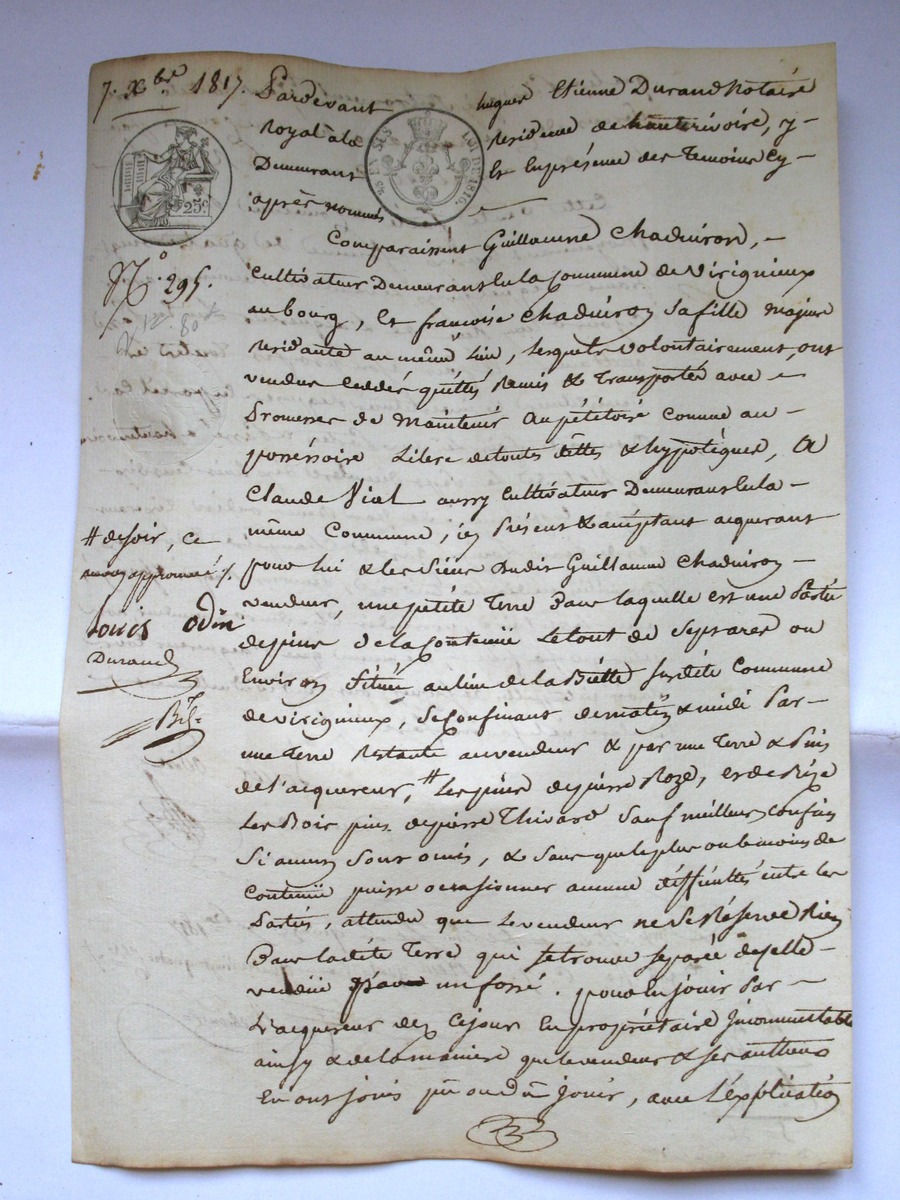 7. Xbre 1817. Pardevant hugues Etienne Durand Notaire
Royal à la Residence de hauterivoire, y
Demeurant et En présence des Temoins Cy
après nommés
25c.
LOI DE 1816.
Comparaissent Guillaume Chaduiron,
Cultivateur Demeurant En la Commune de Virignieux
au bourg, Et françoise Chaduiron sa fille majeure
Residante au même Lieu, Lesquels volontairement, ont
vendus ceddés quittés Remis & Transportés avec
Promesse de Maintenir au pétitoire comme au
posséssoire Libere de toutes dêttes & hypotéques, A
Claude Vial aussy Cultivateur Demeurant En la
même Commune, icy Présent & acceptant acquerant
pour lui & les Siens Dudit Guillaume Chaduiron
vendeur, une pétite Terre Dans laquelle est une Partie
de pins de la Contenüe Le tout de Sept ares ou
Environ Située au lieu de la Brétte susdite Commune
de virignieux, Se Confinant de matin & midi Par
une Terre Restante au vendeur & par une Terre & Pins
de l'acquereur, # Les pins de pierre Roze, et de Bize
Les Bois pins de pierre Thivard Sauf meilleurs Confins
Si aucuns Sont omis, & Sans que le plus ou le moins de
Contenüe puisse occasionner aucune difficultés entre les
Parties, attendu que Le vendeur ne Se Réserve Rien
Dans la dite Terre qui Se trouve Separée de celle
vendüe par un fossé. pour En jouir Par
L'acquereur dez Ce jour En propriétaire Incommutable
ainsy & de la maniere que le vendeur & ses autheurs
En ont jouis pû ou dû jouir, avec L'Explication
No. 295.
# de soir, ce
renvoy approuvé ./.
Louis Odin
Durand